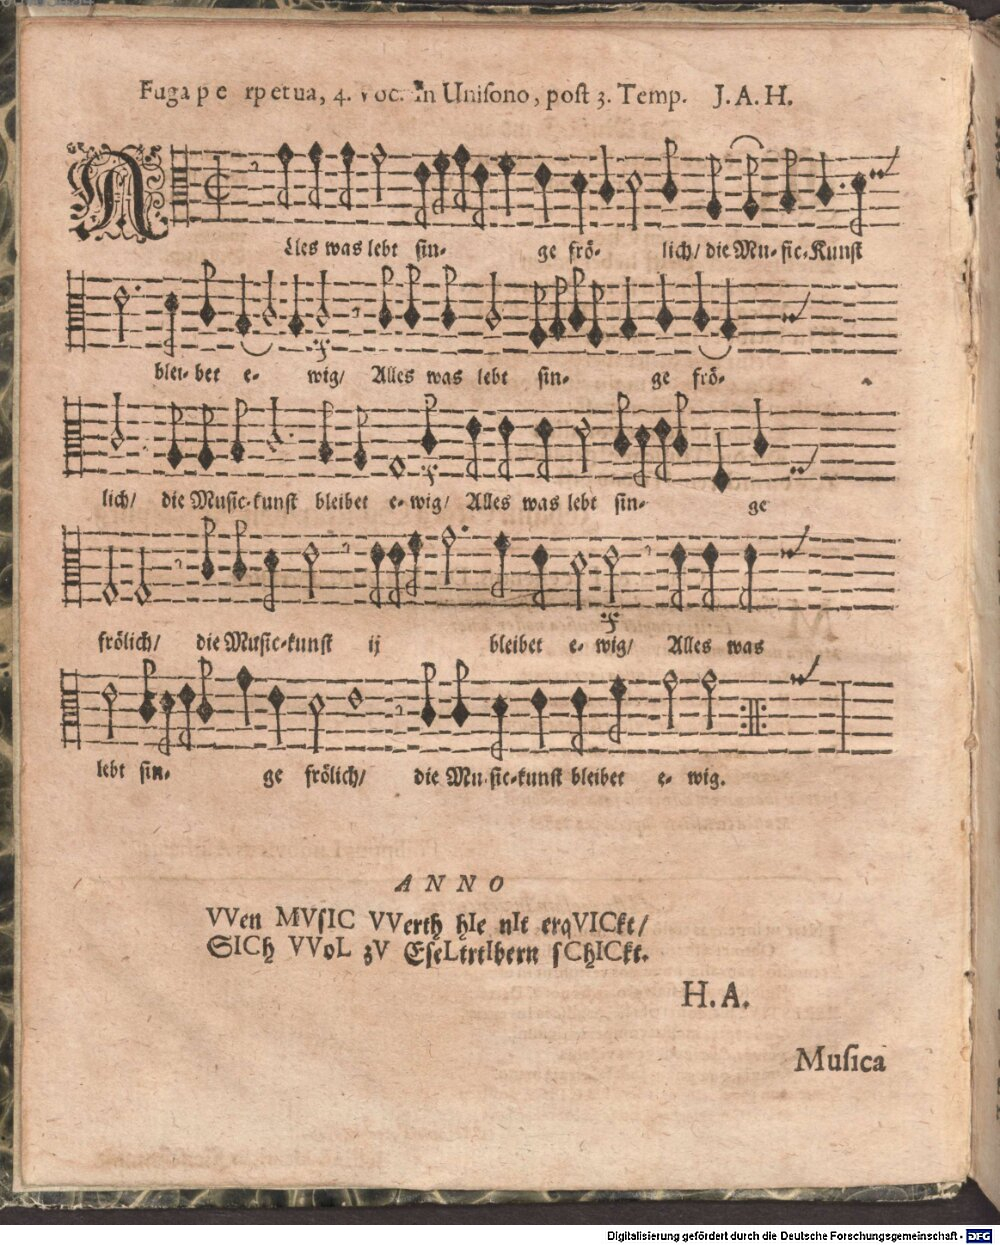 Fuga pe rpetua, 4. Voc. In Uniſono, poſt 3. Temp. J. A. H.
Alles was lebt ſin- ge frö- lich/ die Mu-ſic-Kunſt
blei-bet e- wig/ Alles was lebt ſin- ge frö-
lich/ die Muſic-kunſt bleibet e-wig/ Alles was lebt ſin- ge
frölich/ die Muſic-kunſt ij bleibet e-wig/ Alles was
lebt ſin- ge frölich/ die Mu-ſic-kunſt bleibet e- wig.
ANNO
VVen MVſIC VVerth hIe nIt erqVICkt/
SICh VVoL zV EſeLtrIbern ſChICkt.
H. A.
Muſica
Digitalisierung gefördert durch die Deutsche Forschungsgemeinschaft - DFG